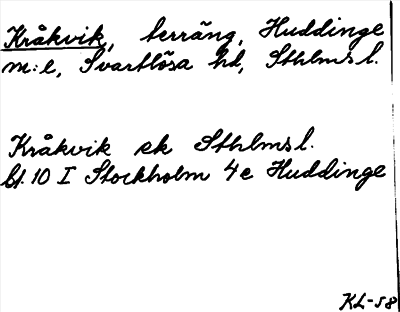 Kråkvik, terräng, Huddinge
m:l, Svartlösa hd, Sthlms l.
Kråkvik ek Sthlms l.
bl. 10 I Stockholm 4e Huddinge
KL-58